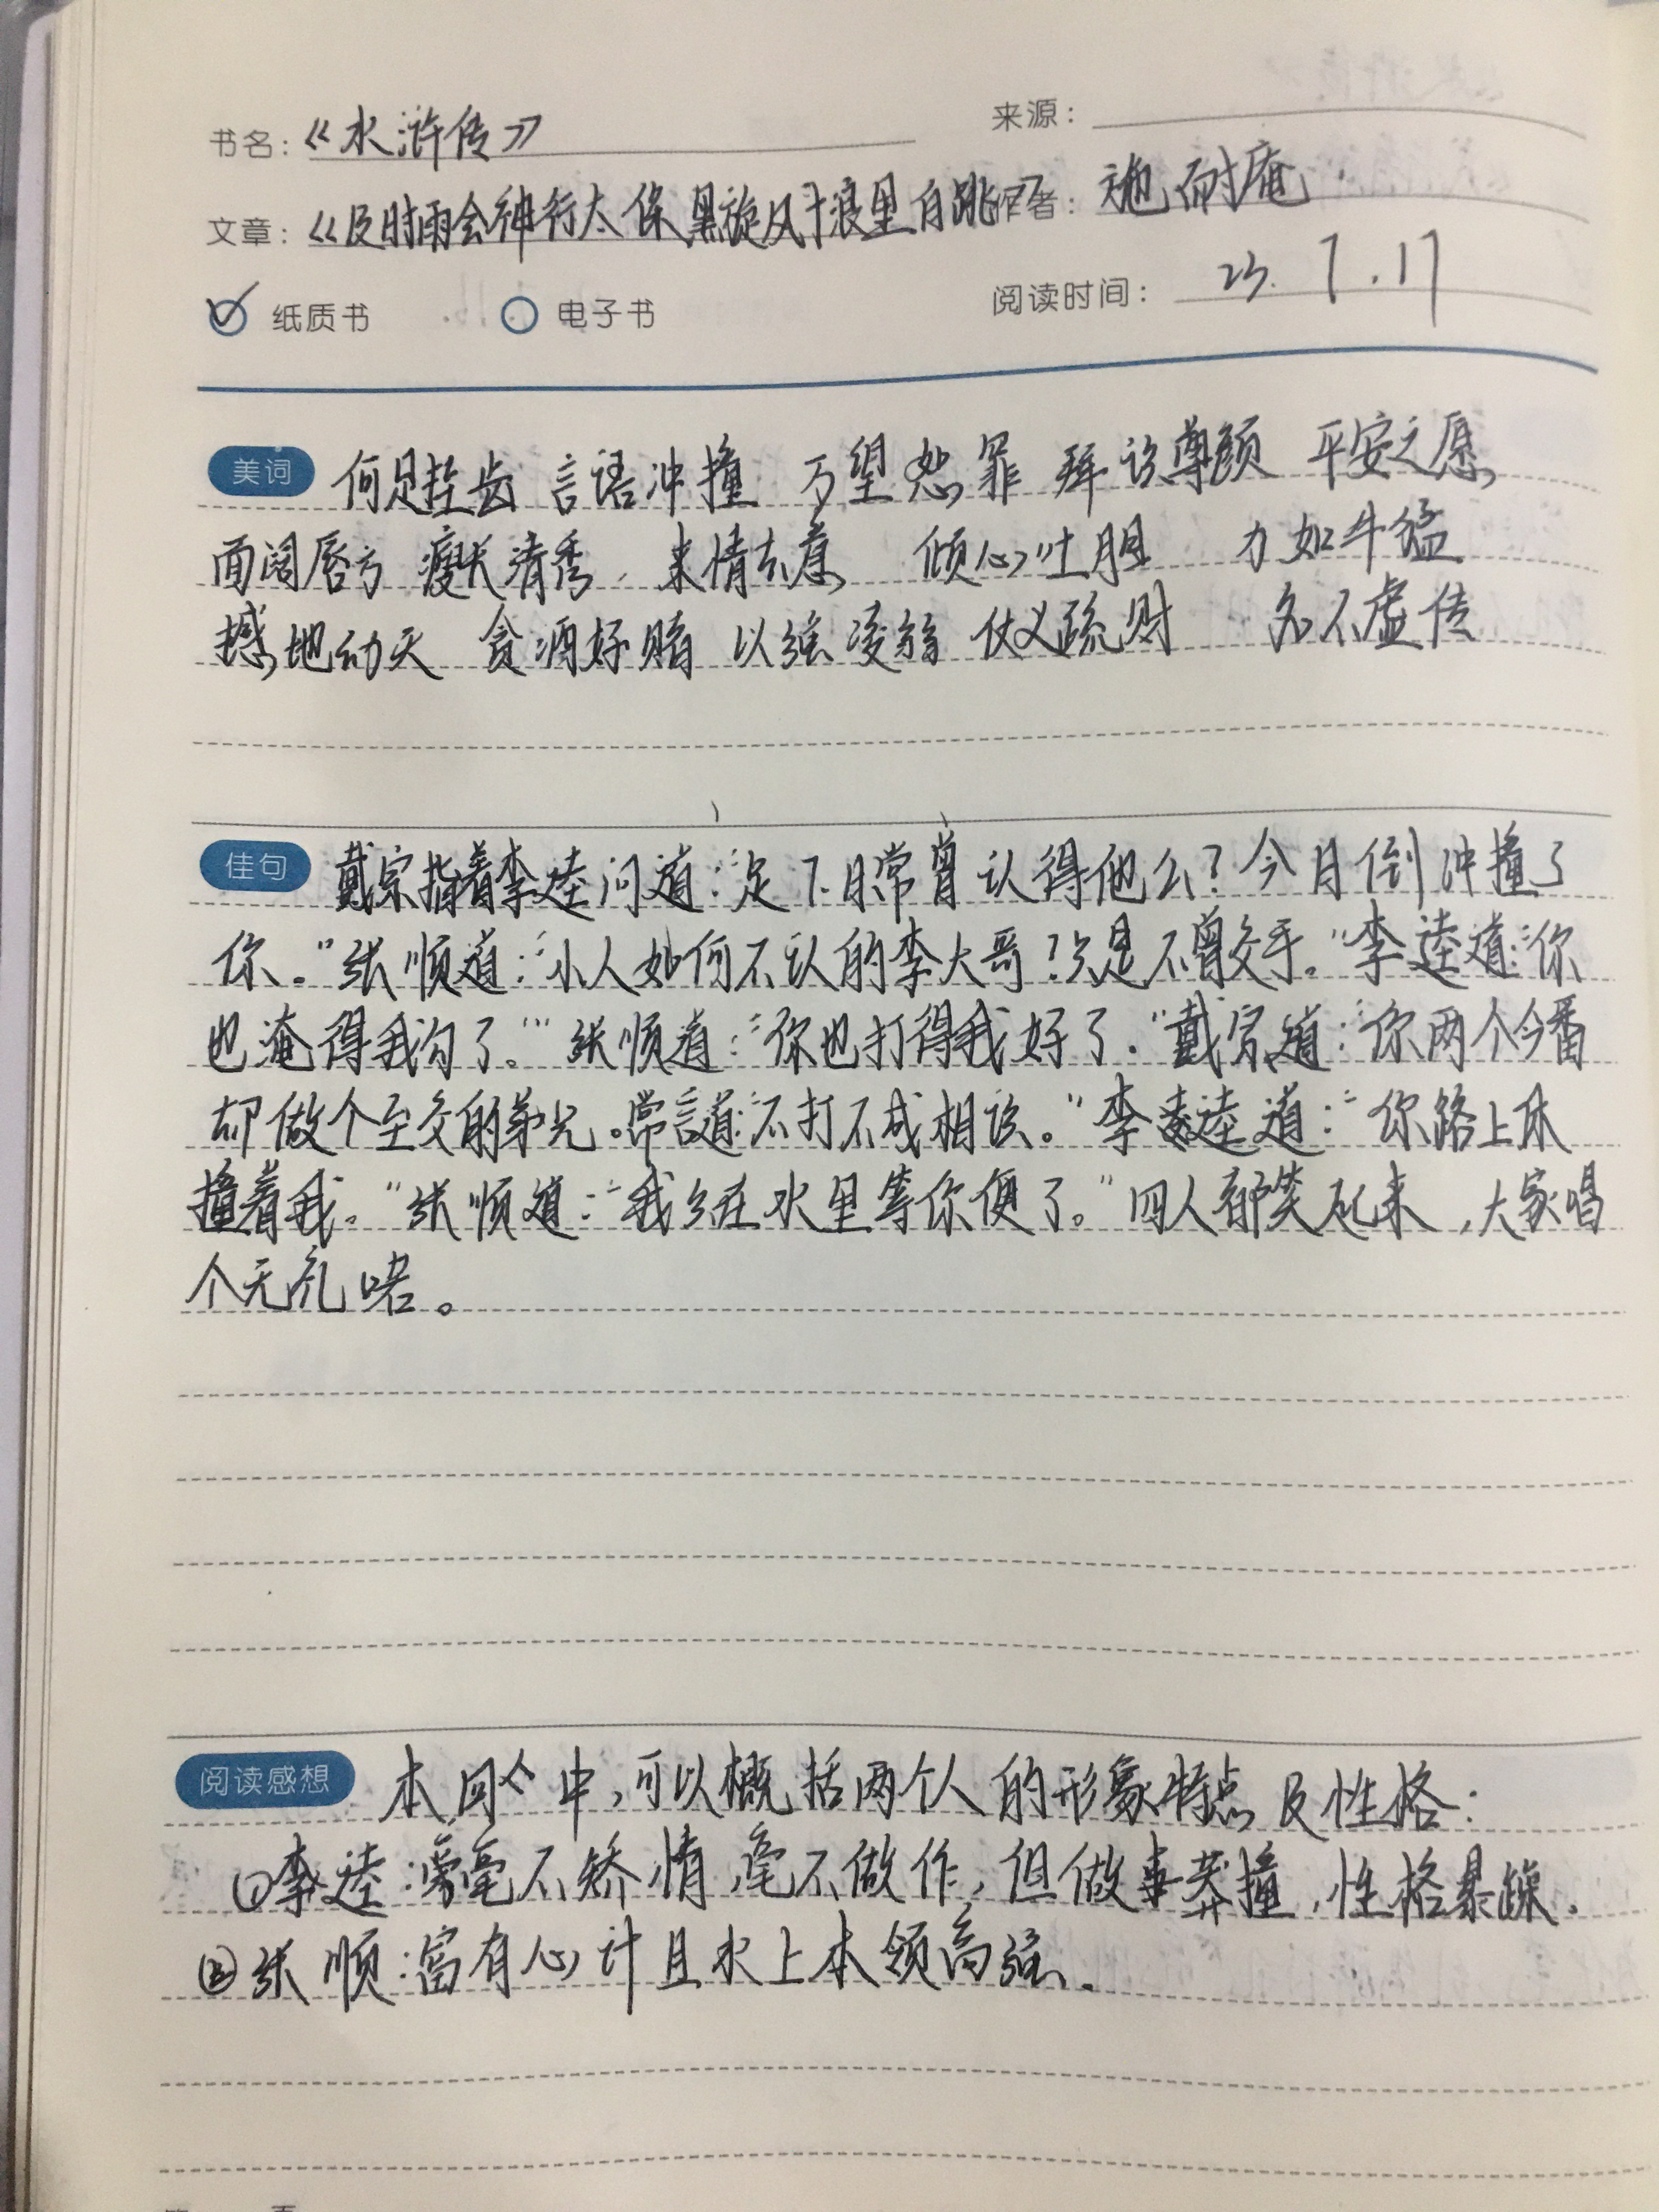 书名：《水浒传》 来源：
文章：《及时雨会神行太保 黑旋风斗浪里白跳》 作者：施耐庵
纸质书 电子书 阅读时间：23.7.17
美词 何足挂齿 言语冲撞 万望恕罪 拜识尊颜 平安之愿
面阔唇方 瘦长清秀 来情去意 倾心吐胆 力如牛猛
撼地动天 贪酒好赌 以强凌弱 仗义疏财 名不虚传
佳句 戴宗指着李逵问道：“足下日常曾认得他么？今日倒冲撞了
你。”张顺道：“小人如何不认的李大哥！只是不曾交手。”李逵道：“你
也淹得我勾了。”张顺道：“你也打得我好了。”戴宗道：“你两个今番
却做个至交的弟兄。常言道：‘不打不成相识。”李逵道：“你路上休
撞着我。”张顺道：“我只在水里等你便了。”四人都笑起来，大家唱
个无礼喏。
阅读感想 本回中，可以概括两个人的形象特点及性格：
①李逵：毫不矫情，毫不做作，但做事莽撞，性格暴躁。
②张顺：富有心计且水上本领高强。